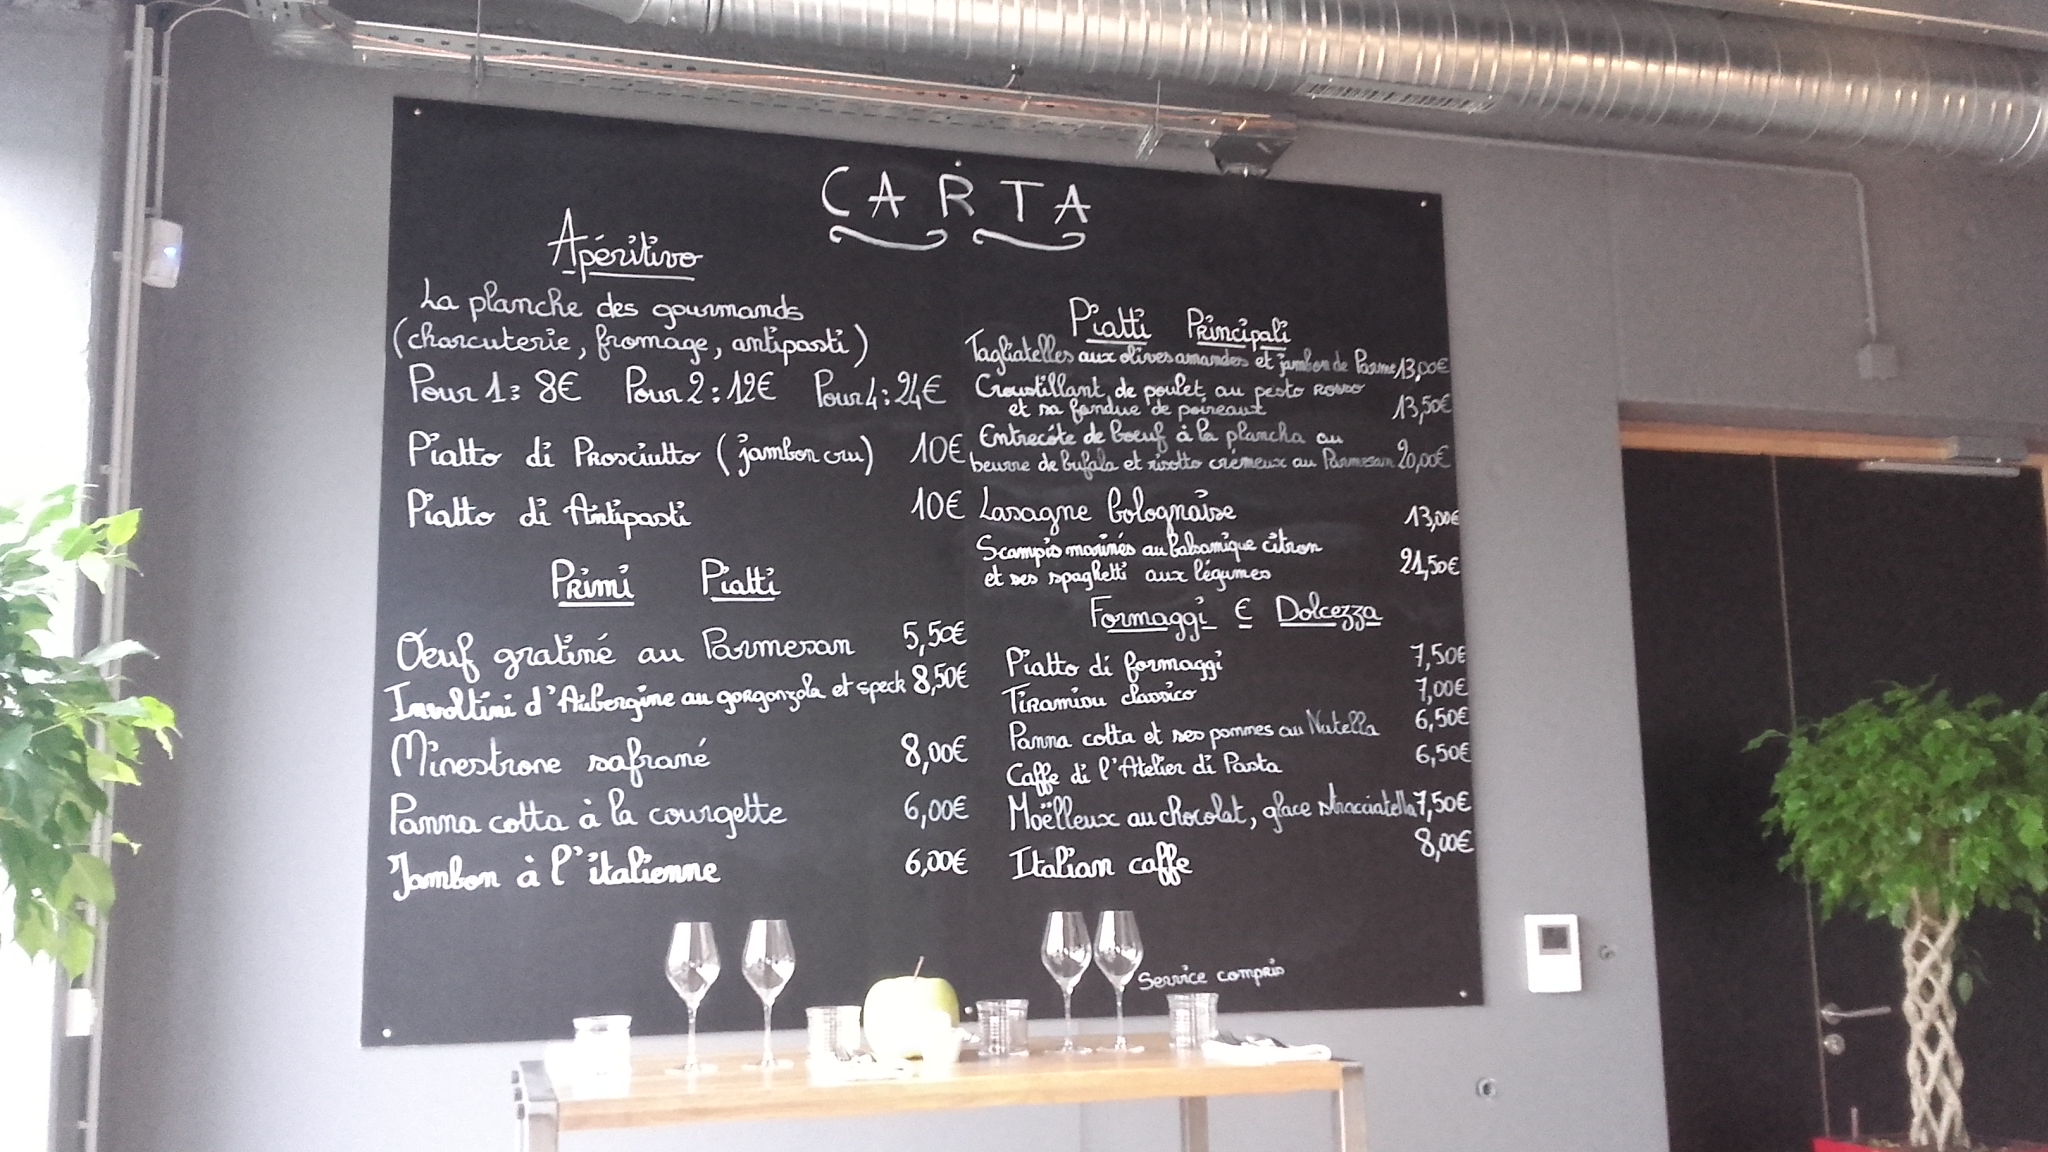 CARTA
Apéritivo
La planche des gourmands
(charcuterie, fromage, antipasti)
Pour 1 : 8€ Pour 2 : 12€ Pour 4 : 24€
Piatto di Prosciutto (jambon cru) 10€
Piatto di Antipasti 10€
Primi Piatti
Oeuf gratiné au Parmesan 5,50€
Involtini d'Aubergine au gorgonzola et speck 8,50€
Minestrone safrané 8,00€
Panna cotta à la courgette 6,00€
Jambon à l'italienne 6,00€
Piatti Principali
Tagliatelles aux olives amandes et jambon de Parme 13,00€
Croustillant de poulet au pesto rosso
et sa fondue de poireaux 13,50€
Entrecôte de boeuf à la plancha au
beurre de bufala et risotto crémeux au Parmesan 20,00€
Lasagne bolognaise 13,00€
Scampis marinés au balsamique citron
et ses spaghetti aux légumes 21,50€
Formaggi E Dolcezza
Piatto di formaggi 7,50€
Tiramisu classico 7,00€
Panna cotta et ses pommes au Nutella 6,50€
Caffe di l'Atelier di Pasta 6,50€
Moëlleux au chocolat, glace stracciatella 7,50€
Italian caffe 8,00€
Service compris